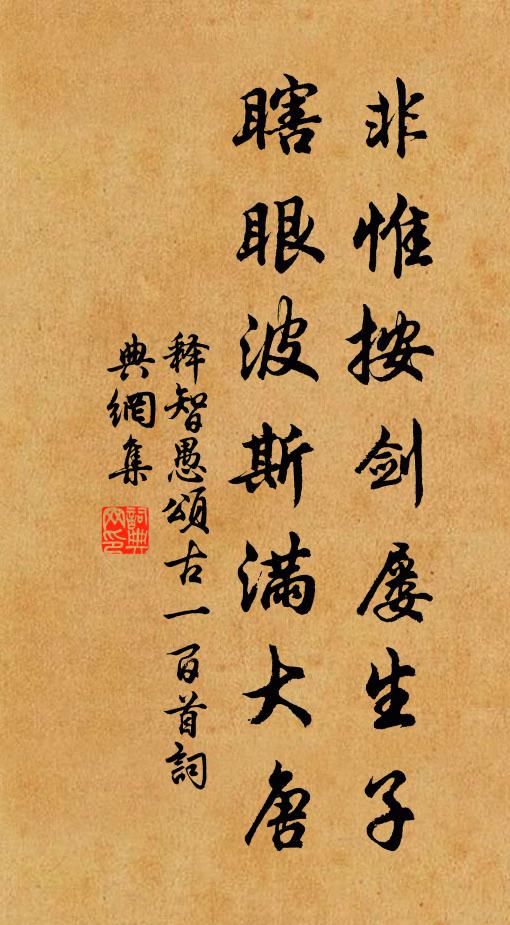 非惟按剑屡生子
瞎眼波斯满大唐
释智愚颂古一百首詞
典網集
詞典
网印